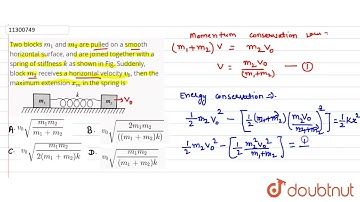 11300749
Two blocks m₁ and m₂ are pulled on a smooth
horizontal surface, and are joined together with
a spring of stiffness k as shown in Fig. Suddenly,
block m₂ receives a horizontal velocity v₀, then the
maximum extension xₘ in the spring is
m₁ k m₂ → V₀
A. v₀√(m₁m₂/(m₁ + m₂))
B. v₀√(2m₁m₂/((m₁ + m₂)k))
C. v₀√(m₁m₂/(2(m₁ + m₂)k))
D. v₀√(m₁m₂/((m₁ + m₂)k))
Momentum conservation
(m₁+m₂) V = m₂V₀
V = m₂V₀/(m₁+m₂) — ①
Energy conservation →
½ m₂V₀² − [½ (m₁+m₂) (m₂V₀/(m₁+m₂))²] = ½ Kx²
½ m₂V₀² − [½ m₂²V₀²/(m₁+m₂)] = ①
doubtnut